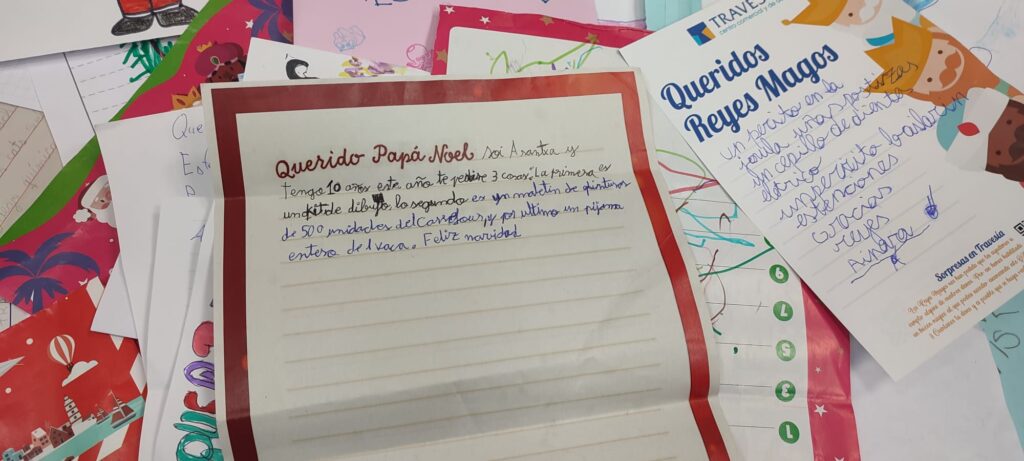 Querido Papá Noel soi Arantxa y
tengo 10 años este año te pedire 3 cosas. La primera es
un kit de dibujo, lo segundo es un maletin de pinturas
de 500 unidades del Carrefour, y por ultimo un pijama
entero de vaca. Feliz navidad
TRAVESÍA
centro comercial y de
Queridos
Reyes Magos
un perrito en la
jaula uñas postizas
un cepillo de diente
eléctrico
un perrito bailarin
estenciones
gracias
reyes
Ainara
Sorpresas en Travesía
Que
9
7
5
3
1